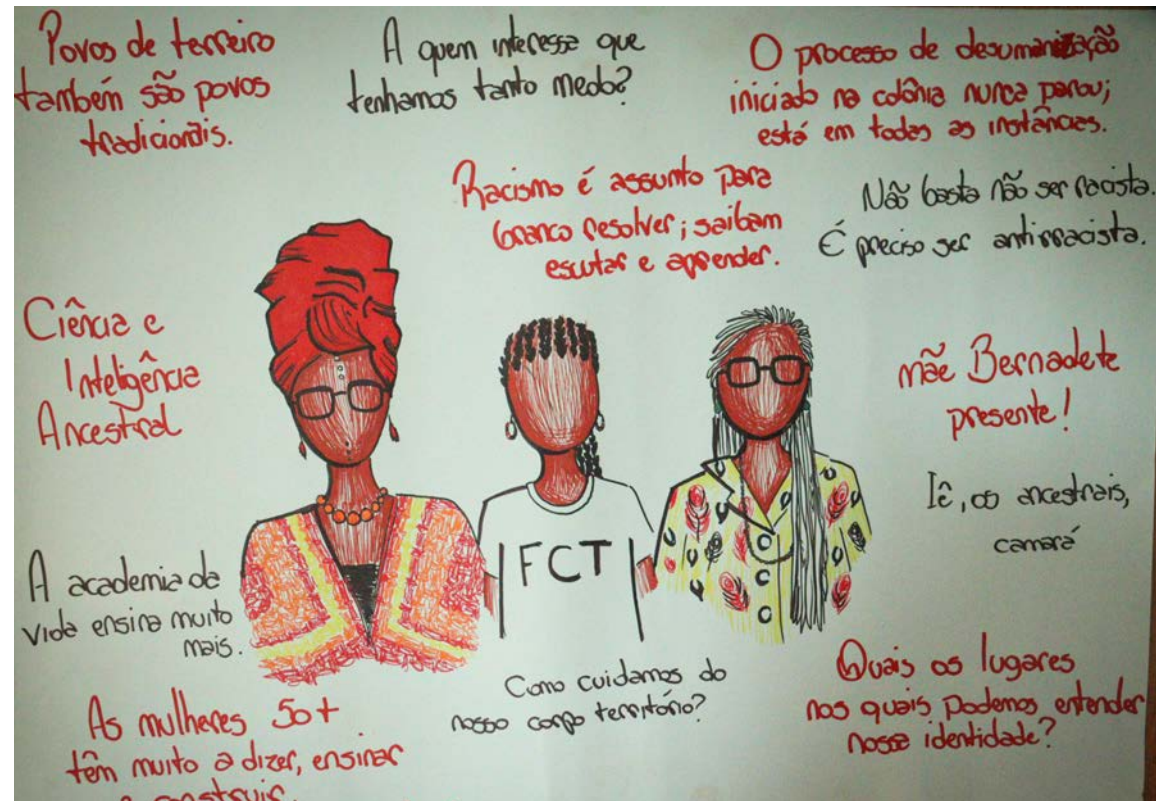 Povos de terreiro
também são povos
tradicionais.
A quem interessa que
tenhamos tanto medo?
O processo de desumanização
iniciado na colônia nunca parou;
está em todas as instâncias.
Racismo é assunto para
branco resolver; saibam
escutar e aprender.
Não basta não ser racista.
É preciso ser antirracista.
Ciência e
Inteligência
Ancestral
mãe Bernadete
presente!
Iê, os ancestrais,
camará
FCT
A academia da
vida ensina muito
mais.
Como cuidamos do
nosso corpo território?
Quais os lugares
nos quais podemos entender
nossa identidade?
As mulheres 50+
têm muito a dizer, ensinar
e construir.